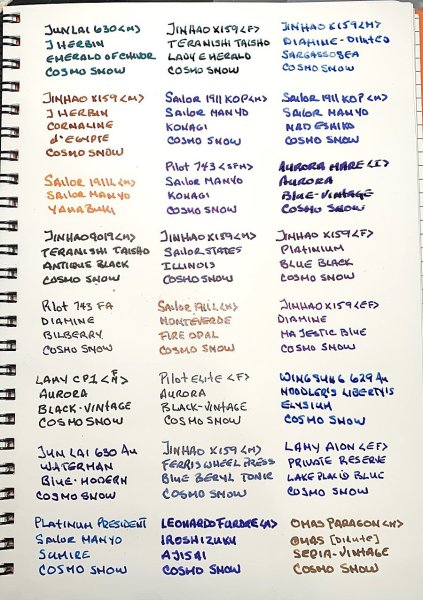 JUNLAI 630 <M>
J HERBIN
EMERALD OF CHIVOR
COSMO SNOW
JINHAO X159 <F>
TERANISHI TAISHO
LADY EMERALD
COSMO SNOW
JINHAO X159 <M>
DIAMINE - DILUTED
SARGASSO SEA
COSMO SNOW
JINHAO X159 <M>
J HERBIN
CORNALINE
d'EGYPTE
COSMO SNOW
SAILOR 1911 KOP <M>
SAILOR MANYO
KONAGI
COSMO SNOW
SAILOR 1911 KOP <M>
SAILOR MANYO
NADESHIKO
COSMO SNOW
SAILOR 1911L <M>
SAILOR MANYO
YAMABUKI
PILOT 743 <SFM>
SAILOR MANYO
KONAGI
COSMO SNOW
AURORA MARE <I>
AURORA
BLUE-VINTAGE
COSMO SNOW
JINHAO 9019 <M>
TERANISHI TAISHO
ANTIQUE BLACK
COSMO SNOW
JINHAO X159 <M>
SAILOR STATES
ILLINOIS
COSMO SNOW
JINHAO X159 <F>
PLATINIUM
BLUE BLACK
COSMO SNOW
PILOT 743 FA
DIAMINE
BILBERRY
COSMO SNOW
SAILOR 1911L <M>
MONTEVERDE
FIRE OPAL
COSMO SNOW
JINHAO X159 <EF>
DIAMINE
MAJESTIC BLUE
COSMO SNOW
LAMY CP1
AURORA
BLACK-VINTAGE
COSMO SNOW
PILOT ELITE <F>
AURORA
BLACK-VINTAGE
COSMO SNOW
WINGSUNG 629 Au
NOODLER'S LIBERTY'S
ELYSIUM
COSMO SNOW
JUN LAI 630 Au
WATERMAN
BLUE-MODERN
COSMO SNOW
JINHAO X159 <M>
FERRIS WHEEL PRESS
BLUE BERYL TONIC
COSMO SNOW
LAMY AION <EF>
PRIVATE RESERVE
LAKE PLACID BLUE
COSMO SNOW
PLATINUM PRESIDENT
SAILOR MANYO
SUMIRE
COSMO SNOW
LEONARDO FURORE <M>
IROSHIZUKU
AJISAI
COSMO SNOW
OMAS PARAGON <M>
OMAS [Dilute]
SEPIA-VINTAGE
COSMO SNOW